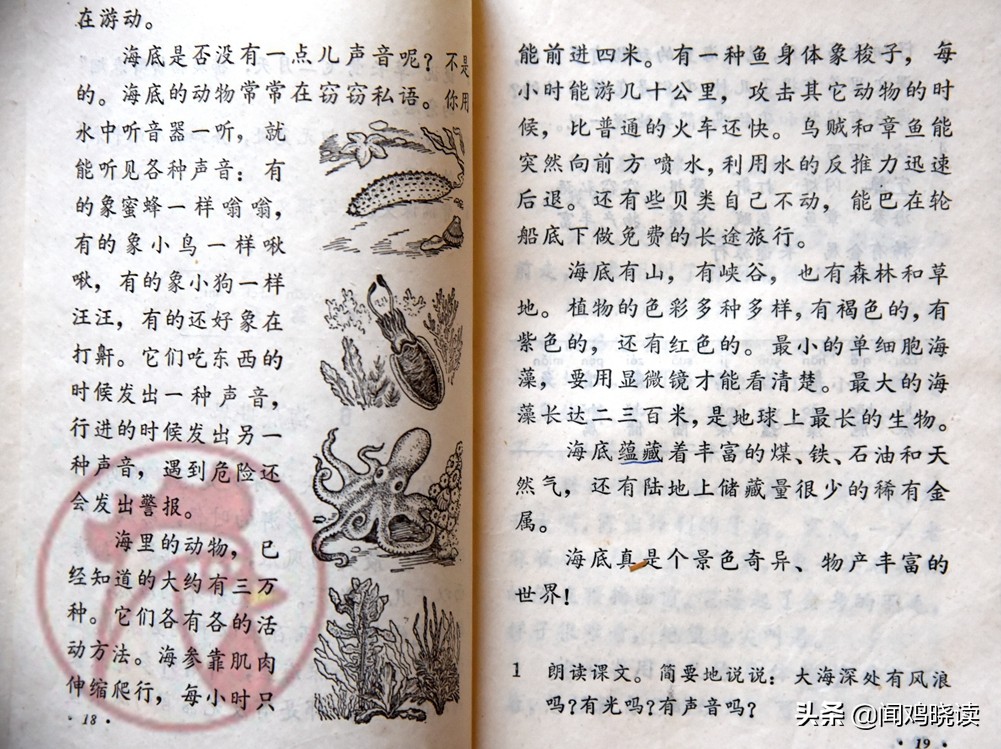 在游动。
海底是否没有一点儿声音呢？不是
的。海底的动物常常在窃窃私语。你用
水中听音器一听，就
能听见各种声音：有
的象蜜蜂一样嗡嗡，
有的象小鸟一样啾
啾，有的象小狗一样
汪汪，有的还好象在
打鼾。它们吃东西的
时候发出一种声音，
行进的时候发出另一
种声音，遇到危险还
会发出警报。
海里的动物，已
经知道的大约有三万
种。它们各有各的活
动方法。海参靠肌肉
伸缩爬行，每小时只
·18·
能前进四米。有一种鱼身体象梭子，每
小时能游几十公里，攻击其它动物的时
候，比普通的火车还快。乌贼和章鱼能
突然向前方喷水，利用水的反推力迅速
后退。还有些贝类自己不动，能巴在轮
船底下做免费的长途旅行。
海底有山，有峡谷，也有森林和草
地。植物的色彩多种多样，有褐色的，有
紫色的，还有红色的。最小的单细胞海
藻，要用显微镜才能看清楚。最大的海
藻长达二三百米，是地球上最长的生物。
海底蕴藏着丰富的煤、铁、石油和天
然气，还有陆地上储藏量很少的稀有金
属。
海底真是个景色奇异、物产丰富的
世界！
1 朗读课文。简要地说说：大海深处有风浪
吗？有光吗？有声音吗？
·19·
头条 @闻鸡晓读